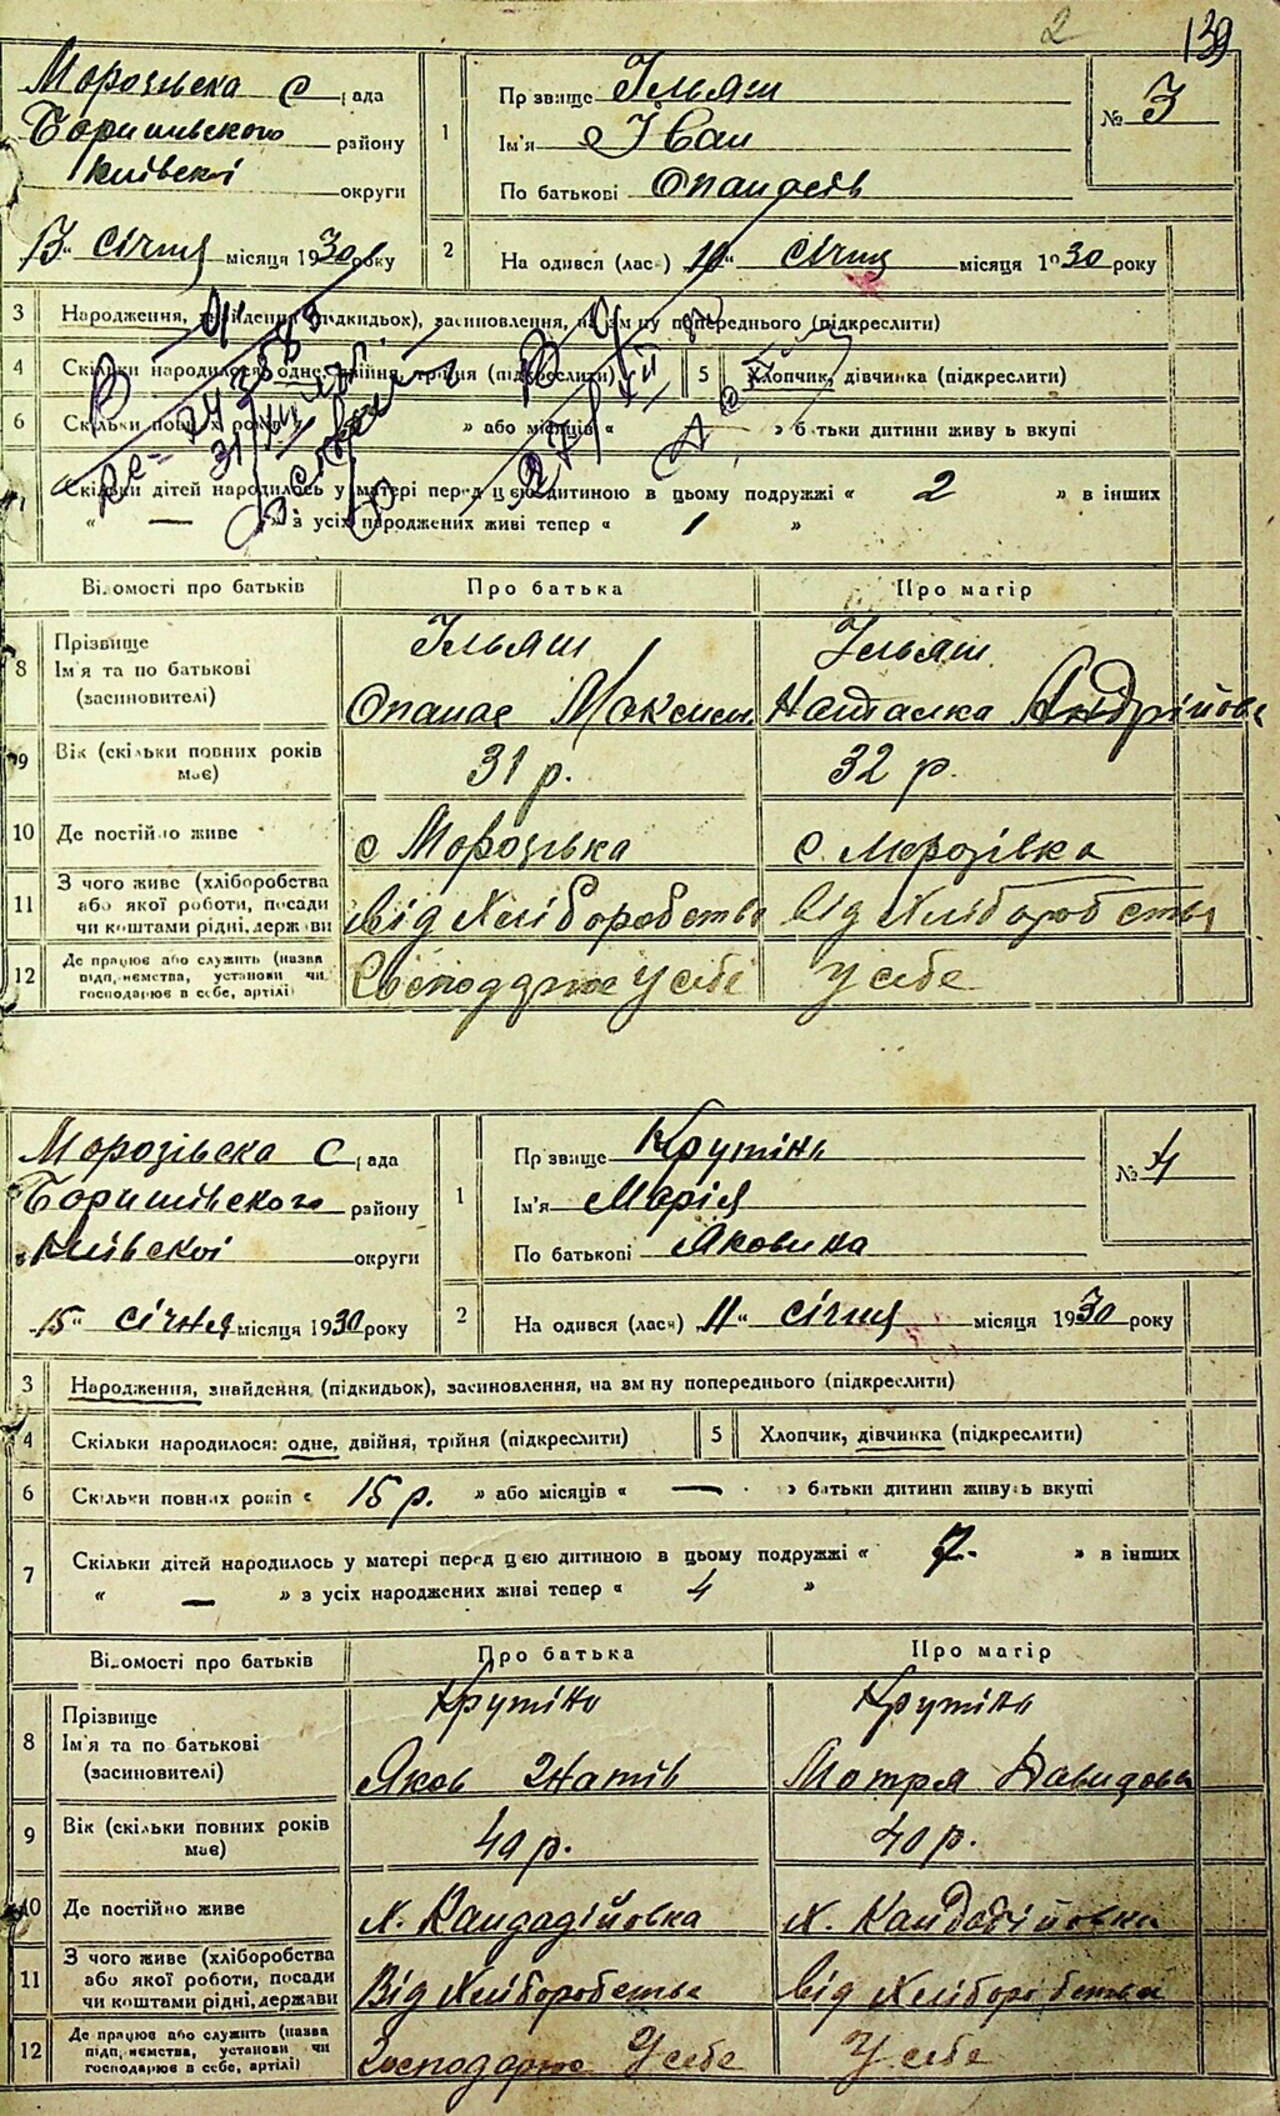 2 139
Морозівска с рада
Баришівського району
Київскої округи
13 " січня місяця 1930 року
1
Прізвище Ільяш
Ім'я Іван
По батькові Опанасів
№ 3
2 На одився (лас ) 10 " січня місяця 1930 року
3 Народження, знайдення (підкидьок), засиновлення, на зм ну попереднього (підкреслити)
4 Скільки народилося: одне, двійня, трійня (підкреслити)
5 Хлопчик, дівчинка (підкреслити)
6 Скільки повних років « » або місяців « » батьки дитини живу ь вкупі
Скільки дітей народилось у матері перед цією дитиною в цьому подружжі « 2 » в інших
« — » з усіх народжених живі тепер « 1 »
Відомості про батьків Про батька Про матір
8 Прізвище
Ім'я та по батькові
(засиновителі)
Ільяш Ільяш
Опанас Максим. Наталка Андрійова
9 Вік (скільки повних років
має)
31 р. 32 р.
10 Де постійно живе с Морозівка с. Морозівка
11 З чого живе (хліборобства
або якої роботи, посади
чи коштами рідні, держави
від хліборобства від хліборобства
12 Де працює або служить (назва
підприємства, установи чи
господарює в себе, артілі)
Господарює у себе у себе
Морозівска с рада
Баришівського району
Київскої округи
15 " січня місяця 1930 року
1
Прізвище Крутінь
Ім'я Марія
По батькові Яковина
№ 4
2 На одився (лася) 11 " січня місяця 1930 року
3 Народження, знайдення (підкидьок), засиновлення, на зм ну попереднього (підкреслити)
4 Скільки народилося: одне, двійня, трійня (підкреслити)
5 Хлопчик, дівчинка (підкреслити)
6 Скільки повних років « 15 р. » або місяців « — » батьки дитини живуть вкупі
7 Скільки дітей народилось у матері перед цією дитиною в цьому подружжі « 7. » в інших
« — » з усіх народжених живі тепер « 4 »
Відомості про батьків Про батька Про матір
8 Прізвище
Ім'я та по батькові
(засиновителі)
Крутінь Крутінь
Яков Гнатів Мотря Давидова
9 Вік (скільки повних років
має)
40 р. 40 р.
10 Де постійно живе х. Кандадійовка х. Кандадійовка
11 З чого живе (хліборобства
або якої роботи, посади
чи коштами рідні, держави
Від хліборобства від хліборобства
12 Де працює або служить (назва
підприємства, установи чи
господарює в себе, артілі)
Господарює у себе у себе